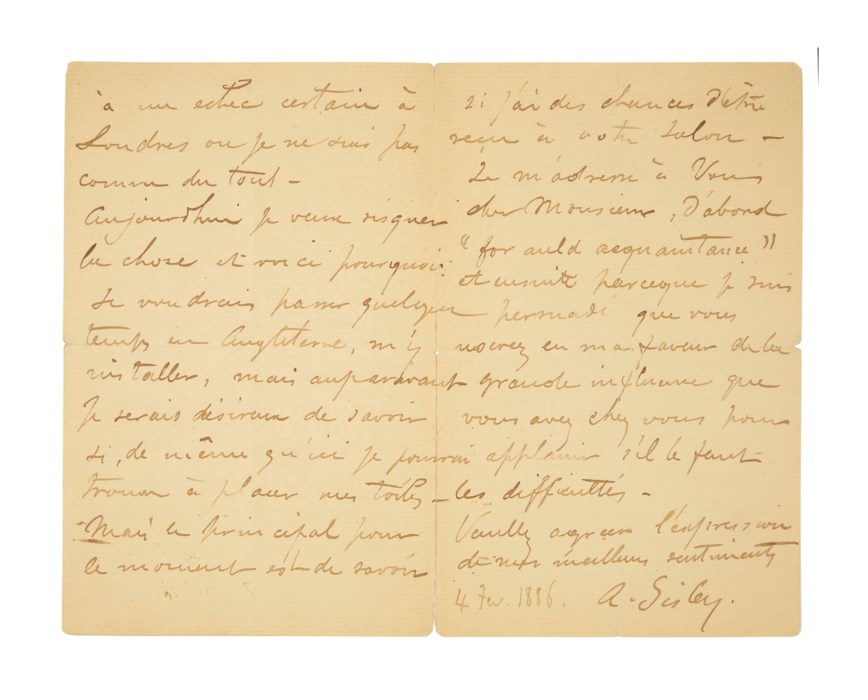 à un echec certain à
Londres ou je ne suis pas
connu du tout -
Aujourdhui je veux risquer
la chose et voici pourquoi.
Je voudrais passer quelque
temps en Angleterre, m'y
installer, mais auparavant
je serais désireux de savoir
si, de même qu'ici je pourrai
trouver à placer mes toiles -
Mais le principal pour
le moment est de savoir
si j'ai des chances d'être
reçu à votre Salon -
Je m'adresse à Vous
cher Monsieur, d'abord
"for auld acquaintance"
et ensuite parceque je suis
persuadé que vous
userez en ma faveur de la
grande influence que
vous avez chez vous pour
applanir s'il le faut
les difficultés -
Veuillez agréer l'expression
de mes meilleurs sentiments
4 Fev. 1886. A. Sisley.